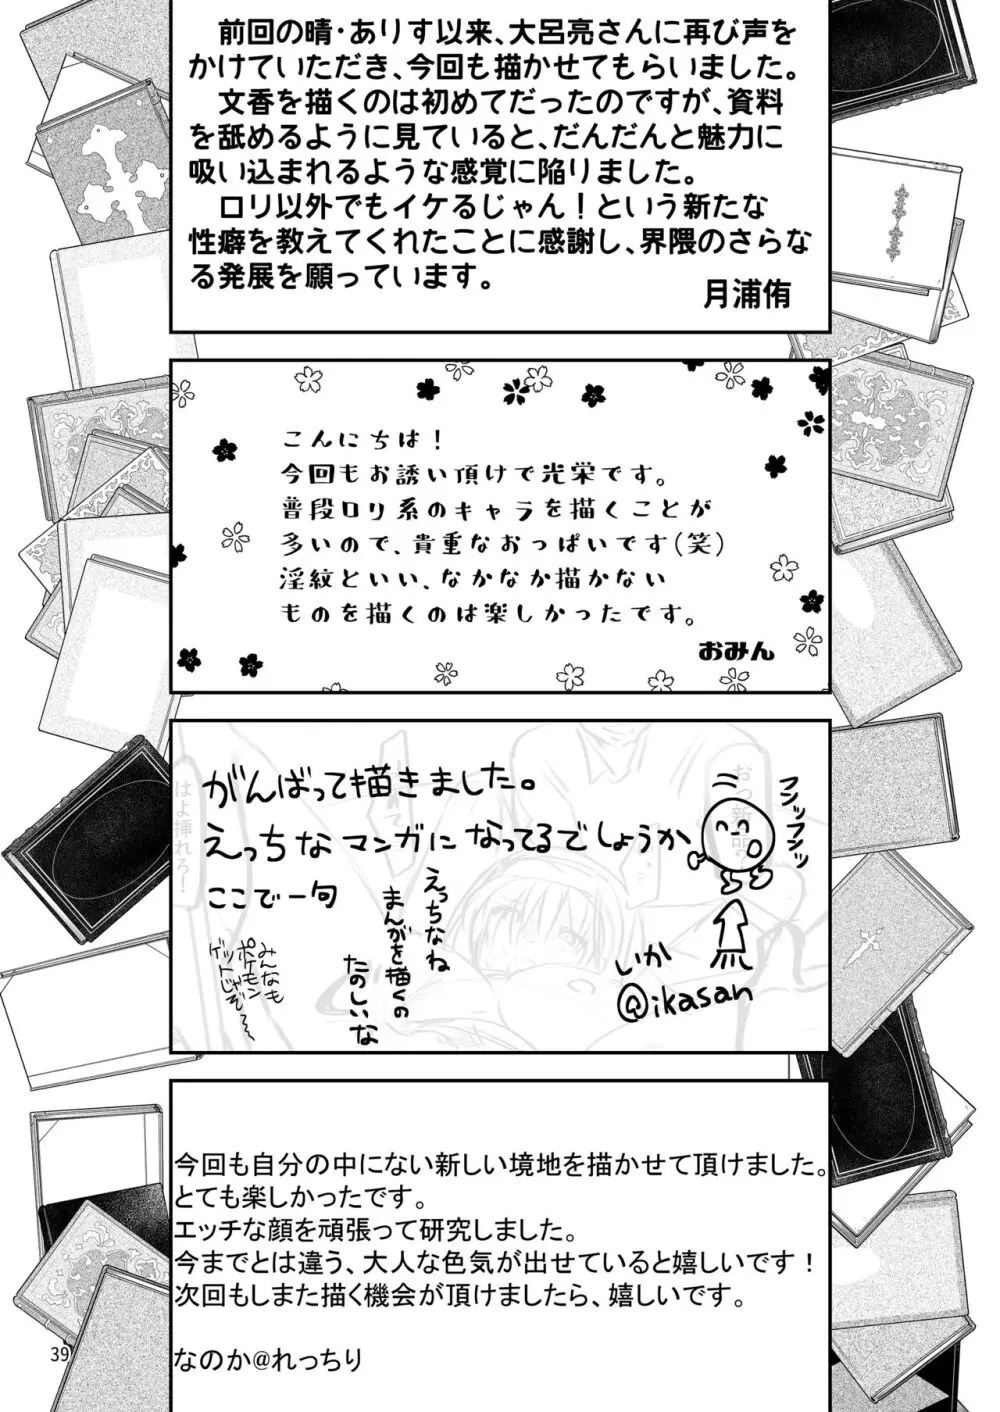 前回の晴・ありす以来、大呂亮さんに再び声を
かけていただき、今回も描かせてもらいました。
文香を描くのは初めてだったのですが、資料
を舐めるように見ていると、だんだんと魅力に
吸い込まれるような感覚に陥りました。
ロリ以外でもイケるじゃん！という新たな
性癖を教えてくれたことに感謝し、界隈のさらな
る発展を願っています。
月浦侑
こんにちは！
今回もお誘い頂けて光栄です。
普段ロリ系のキャラを描くことが
多いので、貴重なおっぱいです(笑)
淫紋といい、なかなか描かない
ものを描くのは楽しかったです。
おみん
がんばって描きました。
えっちなマンガになってるでしょうか
フンッフンッ
ここで一句
えっちなね
まんがを描くの
たのしいな
みんなも
ポケモン
ゲットじゃぞ〜〜
いか
@ikasan
おっ新品？
はよ挿れろ！
今回も自分の中にない新しい境地を描かせて頂けました。
とても楽しかったです。
エッチな顔を頑張って研究しました。
今までとは違う、大人な色気が出せていると嬉しいです！
次回もしまた描く機会が頂けましたら、嬉しいです。
なのか@れっちり
39